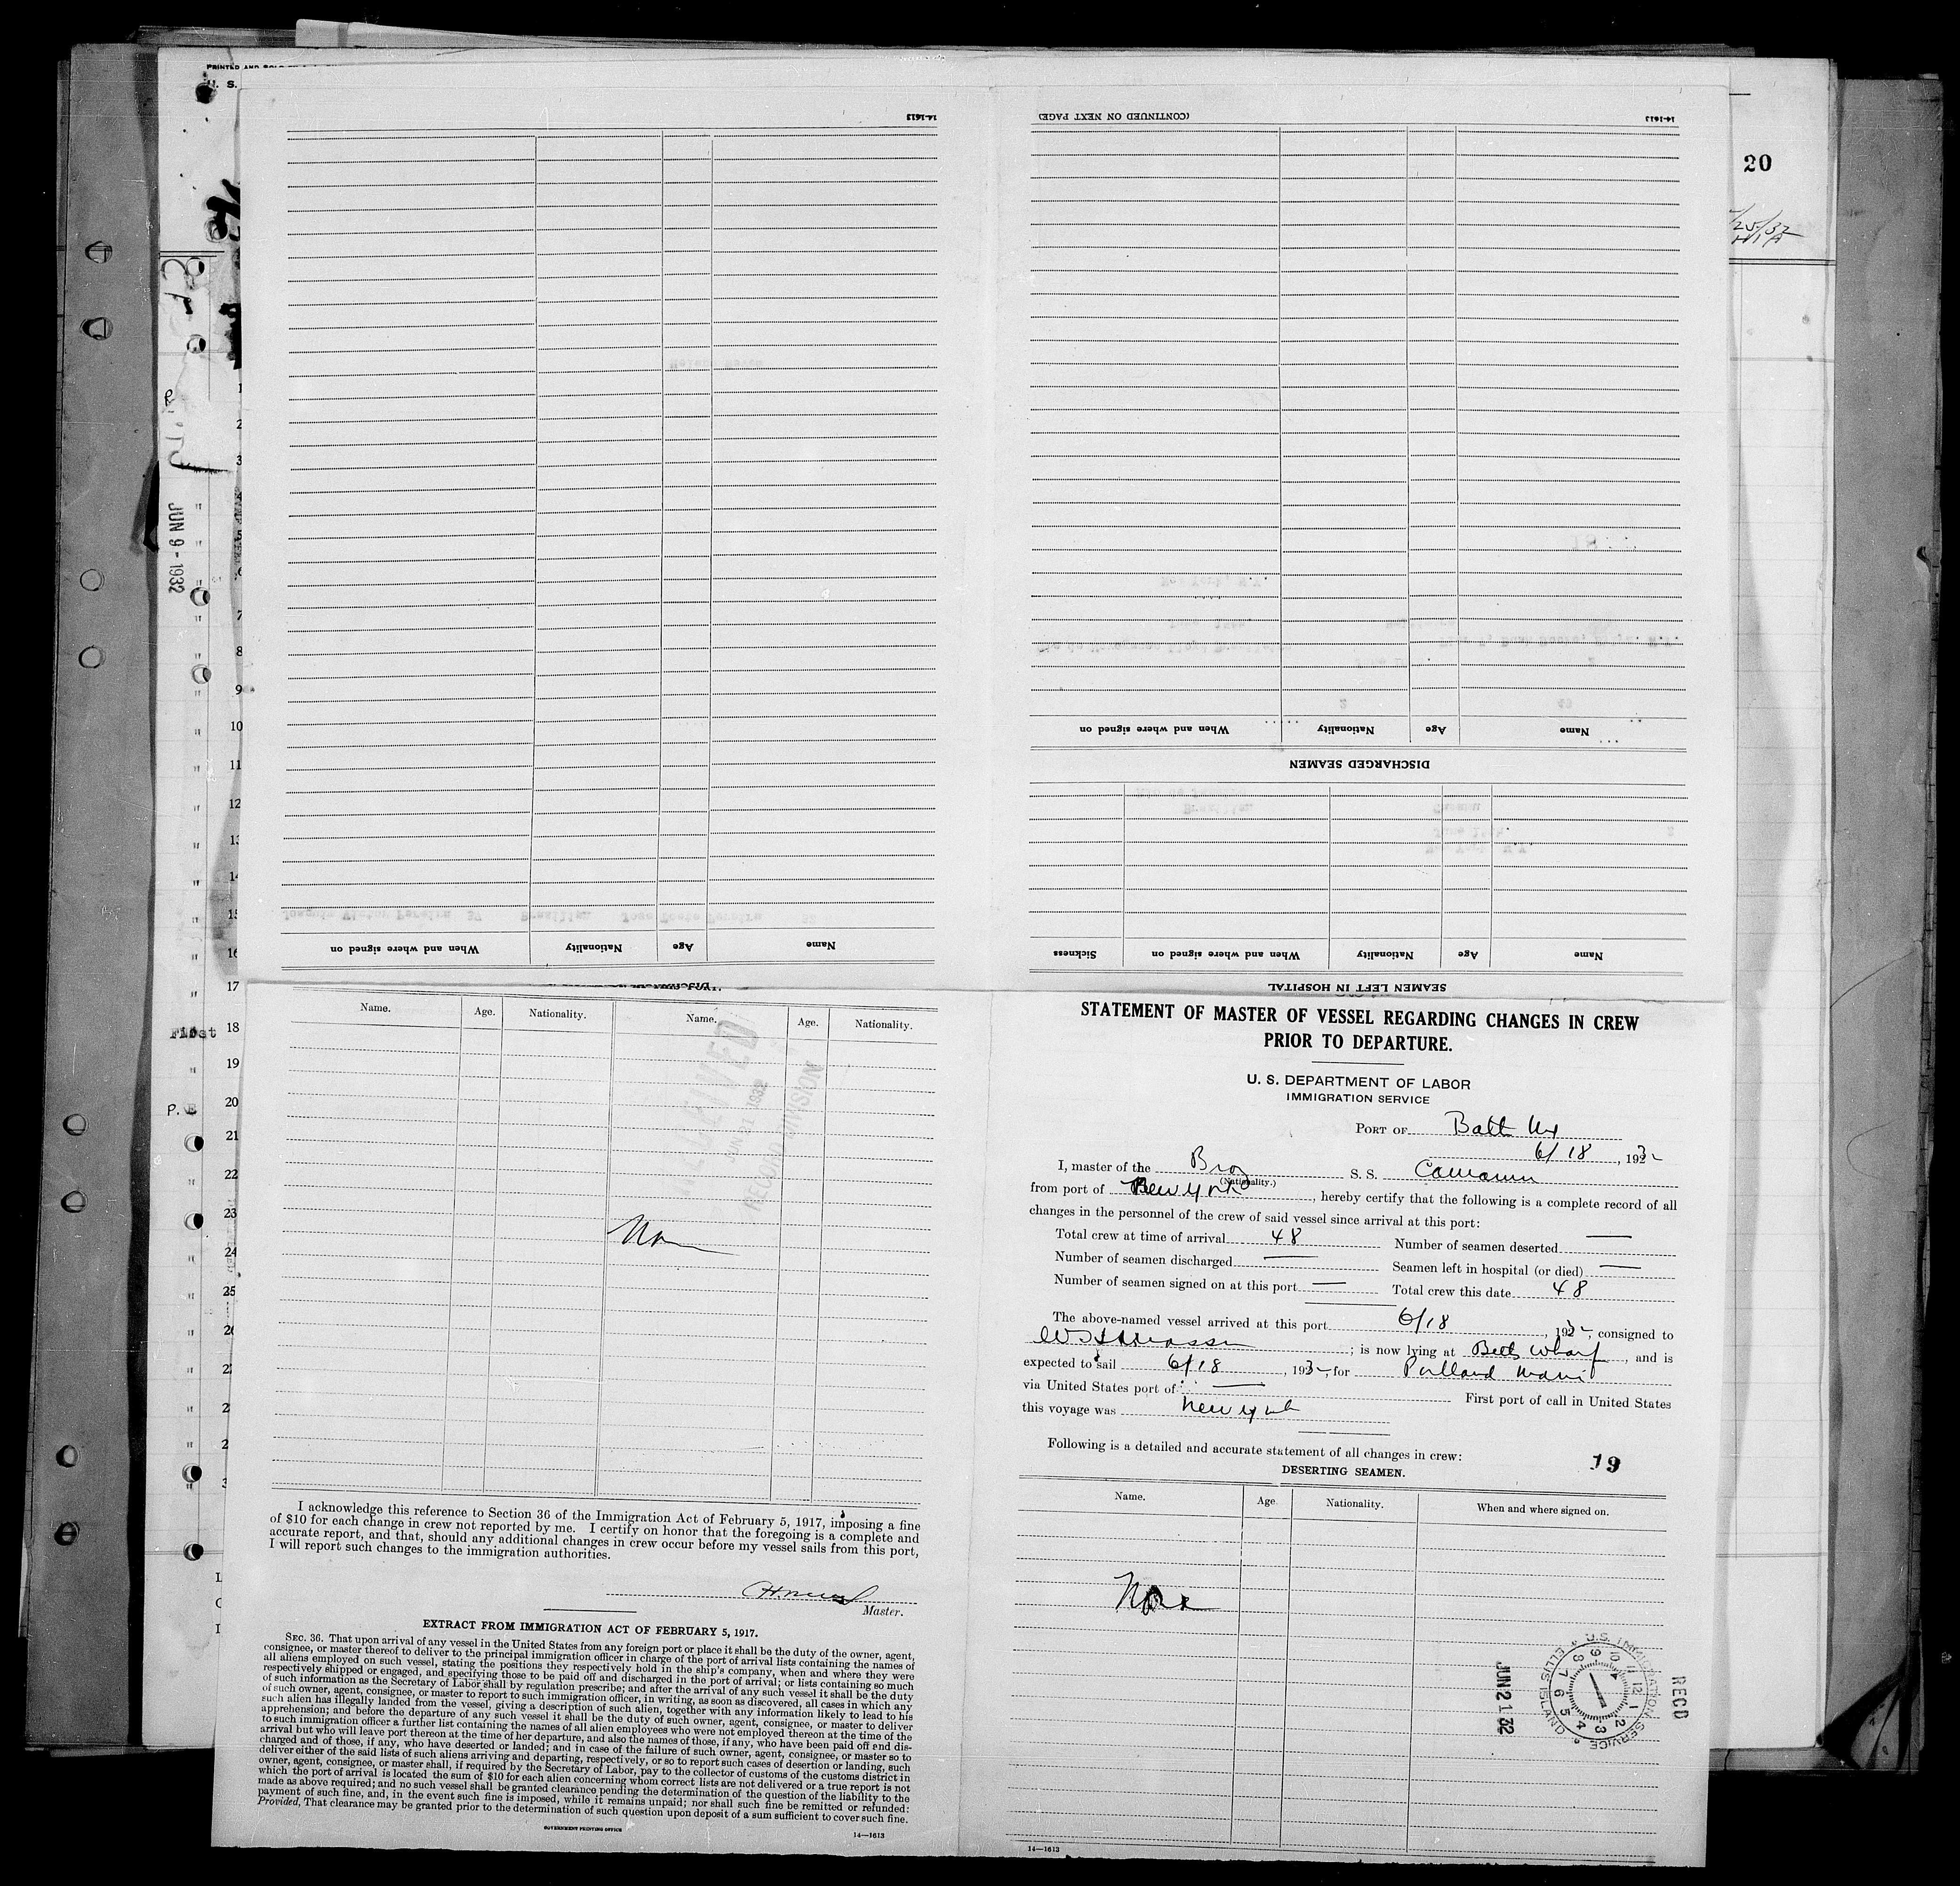 PRINTED AND SOLD
U. S.
20
14-1613
(CONTINUED ON NEXT PAGE)
14-1613
JUN 9 - 1932
Name
Age
Nationality
When and where signed on
DISCHARGED SEAMEN
Name
Age
Nationality
When and where signed on
Sickness
SEAMEN LEFT IN HOSPITAL
Name
Age
Nationality
When and where signed on
2
3
7
8
9
10
11
12
13
14
15
16
17
18
19
20
21
22
23
24
25
First
P.
Name. Age. Nationality. Name. Age. Nationality.
RECEIVED
JUN 21 1932
RECORD DIVISION
None
I acknowledge this reference to Section 36 of the Immigration Act of February 5, 1917, imposing a fine
of $10 for each change in crew not reported by me. I certify on honor that the foregoing is a complete and
accurate report, and that, should any additional changes in crew occur before my vessel sails from this port,
I will report such changes to the immigration authorities.
Master.
EXTRACT FROM IMMIGRATION ACT OF FEBRUARY 5, 1917.
SEC. 36. That upon arrival of any vessel in the United States from any foreign port or place it shall be the duty of the owner, agent,
consignee, or master thereof to deliver to the principal immigration officer in charge of the port of arrival lists containing the names of
all aliens employed on such vessel, stating the positions they respectively hold in the ship's company, when and where they were
respectively shipped or engaged, and specifying those to be paid off and discharged in the port of arrival; or lists containing so much
of such information as the Secretary of Labor shall by regulation prescribe; and after the arrival of any such vessel it shall be the duty
of such owner, agent, consignee, or master to report to such immigration officer, in writing, as soon as discovered, all cases in which any
such alien has illegally landed from the vessel, giving a description of such alien, together with any information likely to lead to his
apprehension; and before the departure of any such vessel it shall be the duty of such owner, agent, consignee, or master to deliver
to such immigration officer a further list containing the names of all alien employees who were not employed thereon at the time of the
arrival but who will leave port thereon at the time of her departure, and also the names of those, if any, who have been paid off and dis-
charged and of those, if any, who have deserted or landed; and in case of the failure of such owner, agent, consignee, or master so to
deliver either of the said lists of such aliens arriving and departing, respectively, or so to report such cases of desertion or landing, such
owner, agent, consignee, or master shall, if required by the Secretary of Labor, pay to the collector of customs of the customs district in
which the port of arrival is located the sum of $10 for each alien concerning whom correct lists are not delivered or a true report is not
made as above required; and no such vessel shall be granted clearance pending the determination of the question of the liability to the
payment of such fine, and, in the event such fine is imposed, while it remains unpaid; nor shall such fine be remitted or refunded:
Provided, That clearance may be granted prior to the determination of such question upon deposit of a sum sufficient to cover such fine.
GOVERNMENT PRINTING OFFICE
14—1613
STATEMENT OF MASTER OF VESSEL REGARDING CHANGES IN CREW
PRIOR TO DEPARTURE.
U. S. DEPARTMENT OF LABOR
IMMIGRATION SERVICE
PORT OF Balt Md
6/18, 1932
I, master of the Braz S. S. Camamu
(Nationality.)
from port of New York, hereby certify that the following is a complete record of all
changes in the personnel of the crew of said vessel since arrival at this port:
Total crew at time of arrival 48 Number of seamen deserted —
Number of seamen discharged — Seamen left in hospital (or died) —
Number of seamen signed on at this port — Total crew this date 48
The above-named vessel arrived at this port 6/18, 1932, consigned to
; is now lying at Beth Wharf, and is
expected to sail 6/18, 1932, for Portland Maine
via United States port of — First port of call in United States
this voyage was New York
Following is a detailed and accurate statement of all changes in crew:
19
DESERTING SEAMEN.
Name. Age. Nationality. When and where signed on.
None
U.S. IMMIGRATION SERVICE
ELLIS ISLAND
JUN 21 32
RECD
14—1613